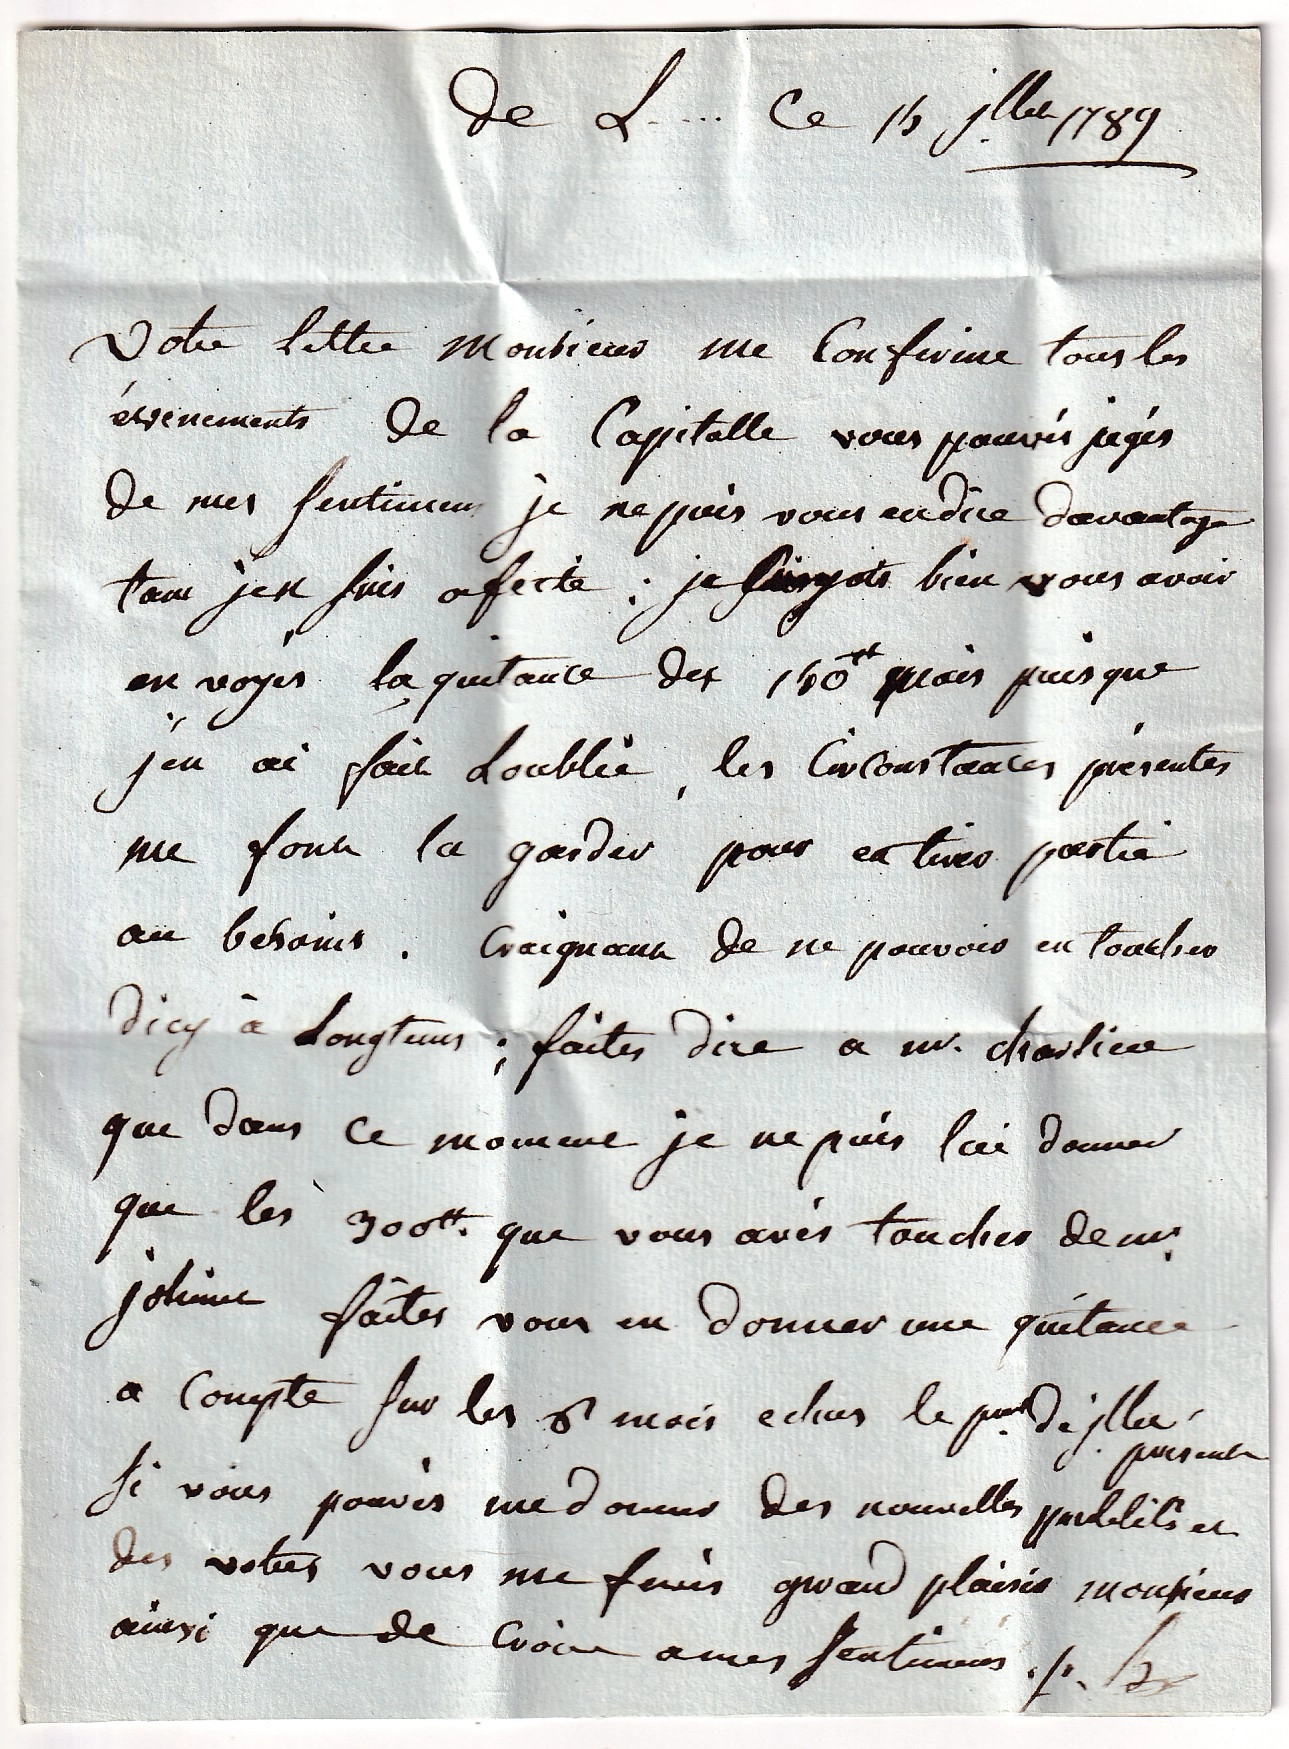 de L.... Ce 15 jllet 1789
Votre lettre Monsieur me Confirme tous les
évenements de la Capitalle vous pouvés jugés
de mes sentimens je ne puis vous en dire davantage
tant j'en suis afecté ; je bien vous avoir
envoyés la quitance des 150tt mais puisque
j'en ai fait Loublie, les Circonstances présentes
me font la garder pour en tirer partie
au besoins. Craignant de ne pouvoir en toucher
dicy à Longtems ; faites dire a mr.
que dans ce moment je ne puis lui donner
que les 300tt. que vous avés touches de mr.
faites vous en donner une quitance
a Compte sur les 6 mois echus le pr. de jllet
present
si vous pouvés me donner des nouvelles publiks et
des votres vous me ferés grand plaisir monsieur
ainsi que de croire a mes sentimens ./.